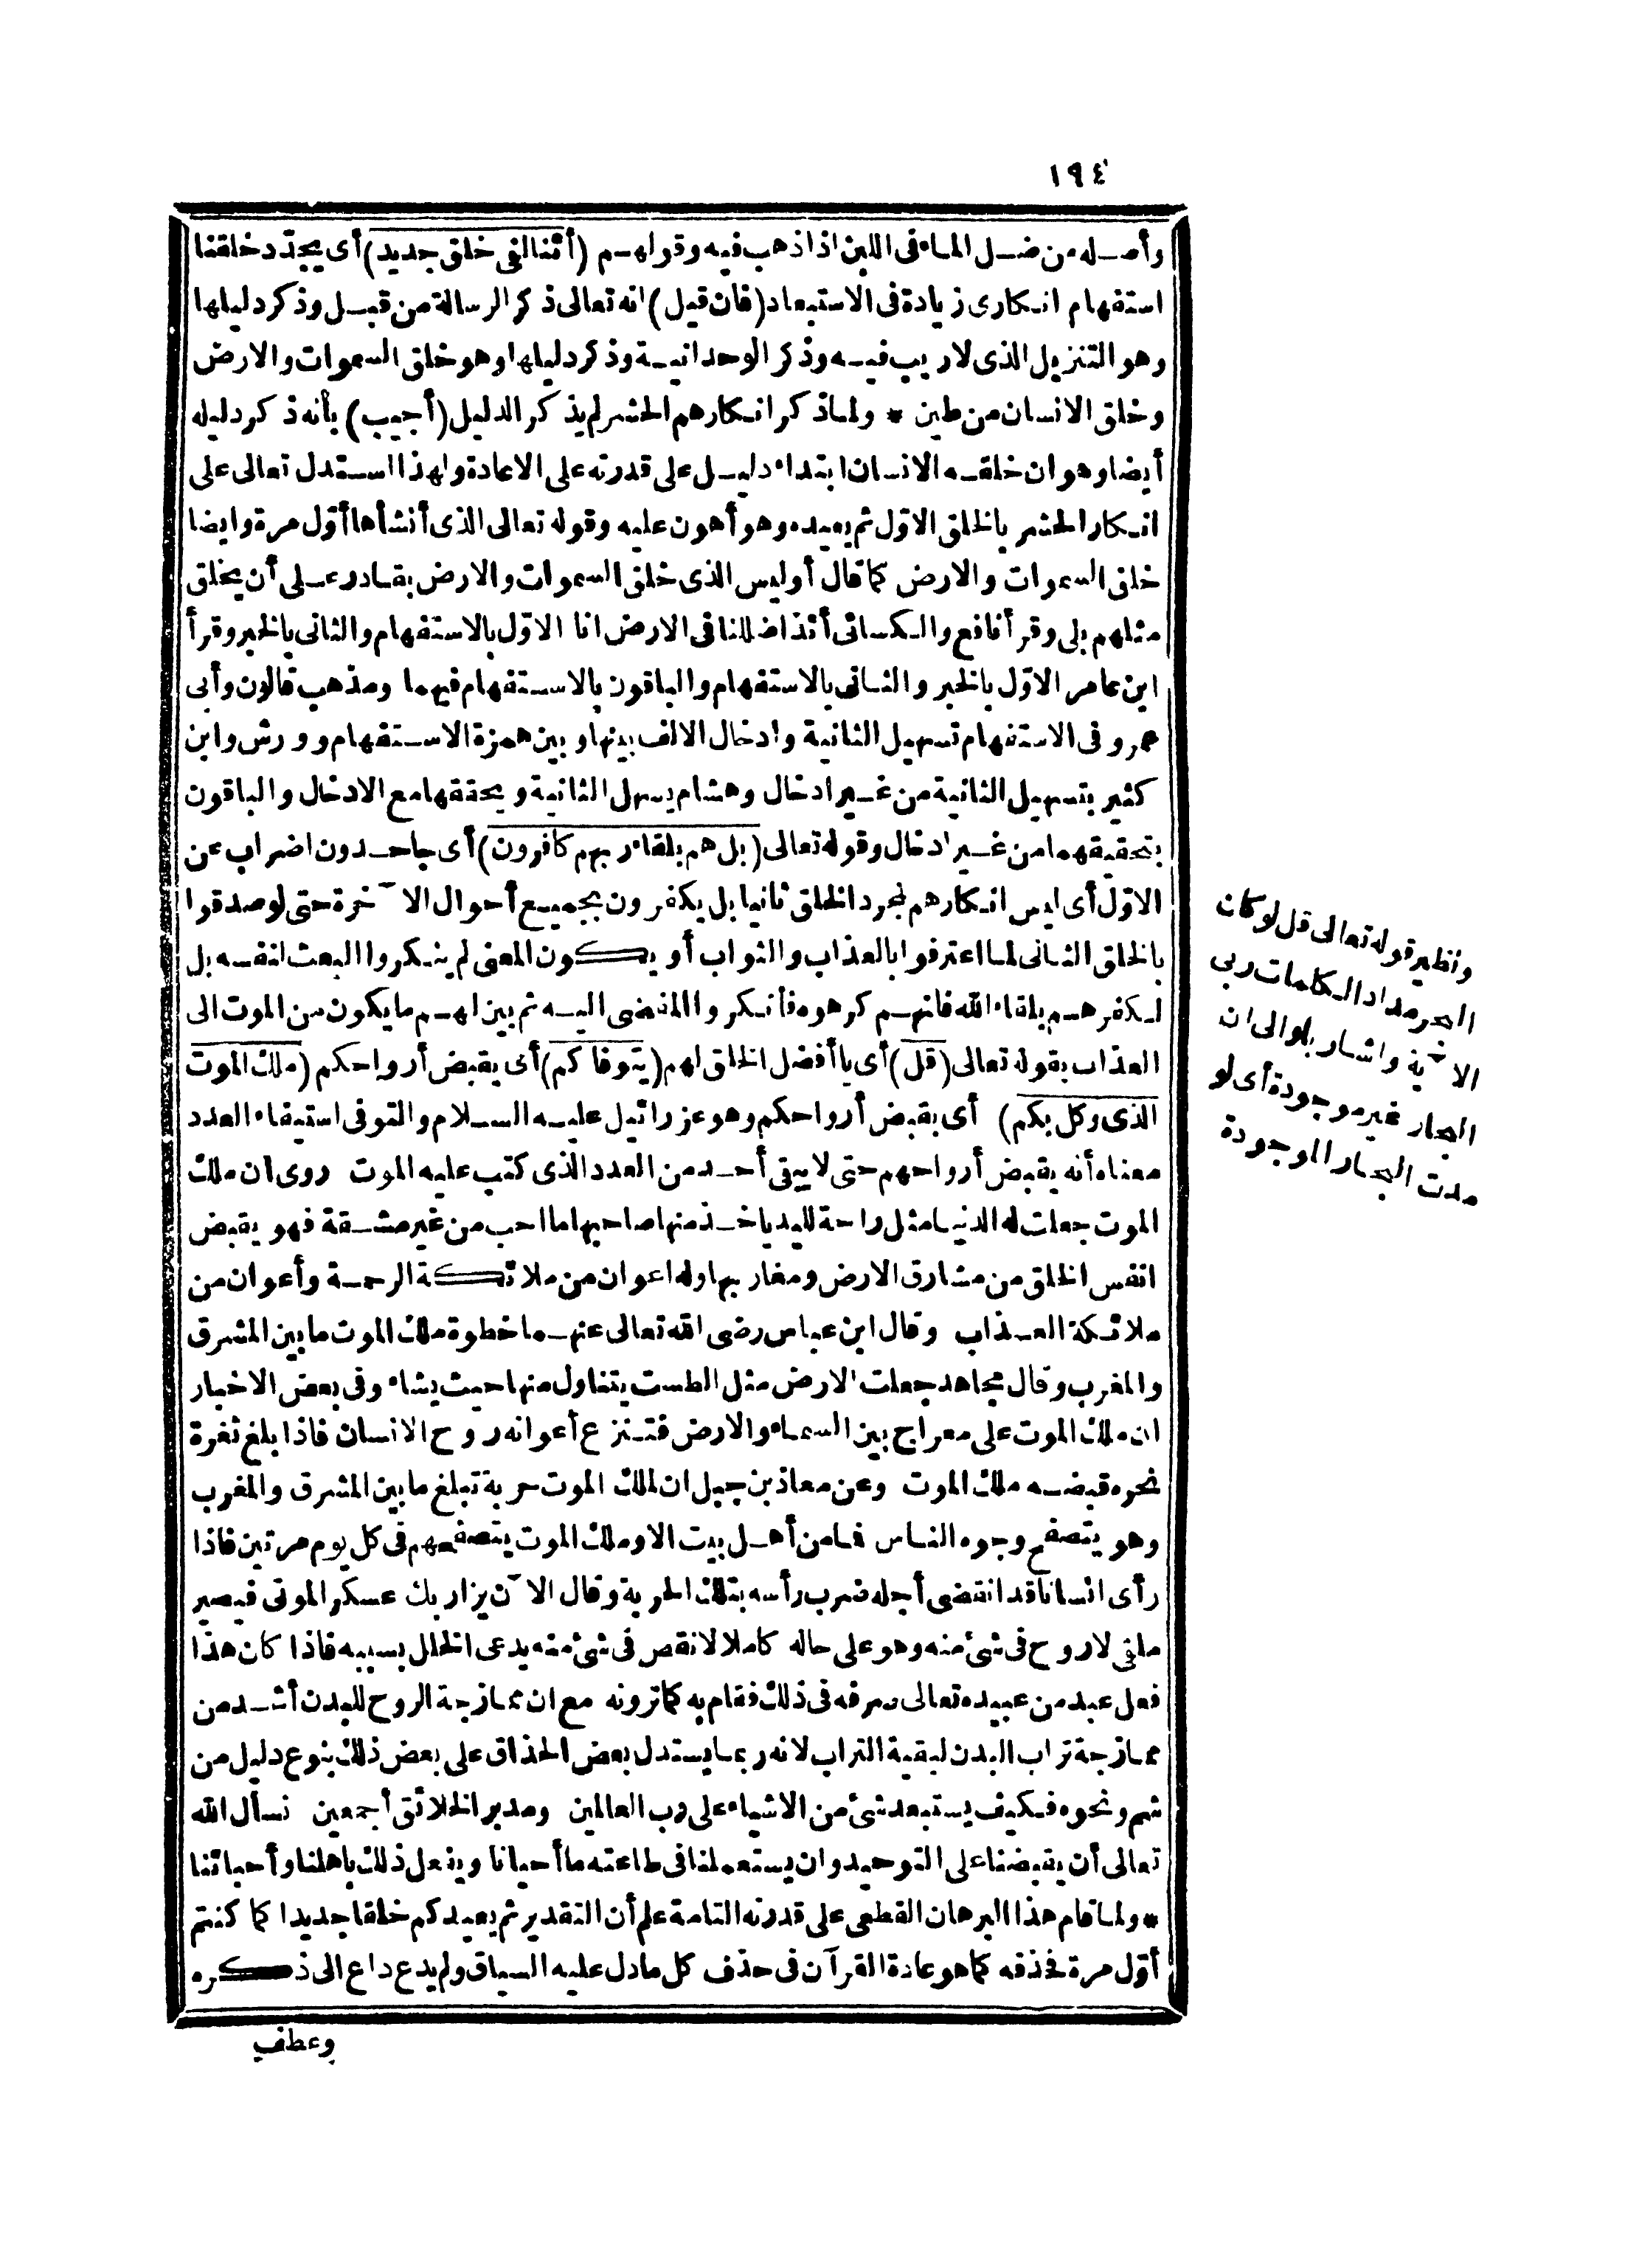 ١٩٤
وأصله من ضل الماء فى اللبن اذا ذهب فيه وقولهم (أئنا لفى خلق جديد) أى يجدّد خلقنا
استفهام انكارى زيادة فى الاستبعاد (فان قيل) انه تعالى ذكر الرسالة من قبل وذكر دليلها
وهو التنزيل الذى لا ريب فيه وذكر الوحدانية وذكر دليلها وهو خلق السموات والارض
وخلق الانسان من طين * ولما ذكر انكارهم الحشر لم يذكر الدليل (أجيب) بأنه ذكر دليله
أيضا وهو ان خلقه الانسان ابتداء دليل على قدرته على الاعادة ولهذا استدل تعالى على
انكار الحشر بالخلق الاوّل ثم يعيده وهو أهون عليه وقوله تعالى الذى أنشأها أوّل مرة وايضا
خلق السموات والارض كما قال أوليس الذى خلق السموات والارض بقادر على أن يخلق
مثلهم بلى وقرأ نافع والكسائى أئذا ضللنا فى الارض انا الاوّل بالاستفهام والثانى بالخبر وقرأ
ابن عامر الاوّل بالخبر والثانى بالاستفهام والباقون بالاستفهام فيهما ومذهب قالون وأبى
عمرو فى الاستفهام تسهيل الثانية وادخال الالف بينها وبين همزة الاستفهام وورش وابن
كثير بتسهيل الثانية من غير ادخال وهشام يسهل الثانية ويحققها مع الادخال والباقون
بتحقيقهما من غير ادخال وقوله تعالى (بل هم بلقاء ربهم كافرون) أى جاحدون اضراب عن
الاوّل أى ليس انكارهم لمجرد الخلق ثانيا بل يكفرون بجميع أحوال الآخرة حتى لو صدقوا
بالخلق الثانى لما اعترفوا بالعذاب والثواب أو يكون المعنى لم ينكروا البعث لنفسه بل
لكفرهم بلقاء الله فانهم كرهوه فأنكروا المفضى اليه ثم بين لهم ما يكون من الموت الى
العذاب بقوله تعالى (قل) أى يا أفضل الخلق لهم (يتوفاكم) أى يقبض أرواحكم (ملك الموت
الذى وكل بكم) أى بقبض أرواحكم وهو عزرائيل عليه السلام والتوفى استيفاء العدد
معناه أنه يقبض أرواحهم حتى لا يبقى أحد من العدد الذى كتب عليه الموت روى ان ملك
الموت جعلت له الدنيا مثل راحة لليد ياخذ منها صاحبها ما احب من غير مشقة فهو يقبض
انفس الخلق من مشارق الارض ومغاربها وله اعوان من ملائكة الرحمة وأعوان من
ملائكة العذاب وقال ابن عباس رضى الله تعالى عنهما خطوة ملك الموت ما بين المشرق
والمغرب وقال مجاهد جعلت الارض مثل الطست يتناول منها حيث يشاء وفى بعض الاخبار
ان ملك الموت على معراج بين السماء والارض فتنزع أعوانه روح الانسان فاذا بلغ ثغرة
نحره قبضه ملك الموت وعن معاذ بن جبل ان لملك الموت حربة تبلغ ما بين المشرق والمغرب
وهو يتصفح وجوه الناس فما من أهل بيت الا وملك الموت يتصفحهم فى كل يوم مرتين فاذا
رأى انسانا قد انقضى أجله ضرب رأسه بتلك الحربة وقال الآن يزار بك عسكر الموتى فيصير
ملقى لا روح فى شئ منه وهو على حاله كاملا لا نقص فى شئ منه يدعى الخلل بسببه فاذا كان هذا
فعل عبد من عبيده تعالى صرفه فى ذلك فقام به كما ترونه مع ان ممازجة الروح للبدن أشد من
ممازجة تراب البدن لبقية التراب لانه ربما يستدل بعض الحذاق على بعض ذلك بنوع دليل من
شم ونحوه فكيف يستبعد شئ من الاشياء على رب العالمين ومدبر الخلائق أجمعين نسأل الله
تعالى أن يقبضنا على التوحيد وان يستعملنا فى طاعته ما أحيانا ويفعل ذلك باهلنا وأحبائنا
* ولما قام هذا البرهان القطعى على قدرته التامة علم أن التقدير ثم يعيدكم خلقا جديدا كما كنتم
أوّل مرة فحذفه كما هو عادة القرآن فى حذف كل ما دل عليه السياق ولم يدع داع الى ذكره
وعطف
ونظير قوله تعالى قل لو كان
البحر مدادا لكلمات ربى
الآية واشار بلو الى ان
البحار غير موجودة أى لو
مدت البحار الموجودة